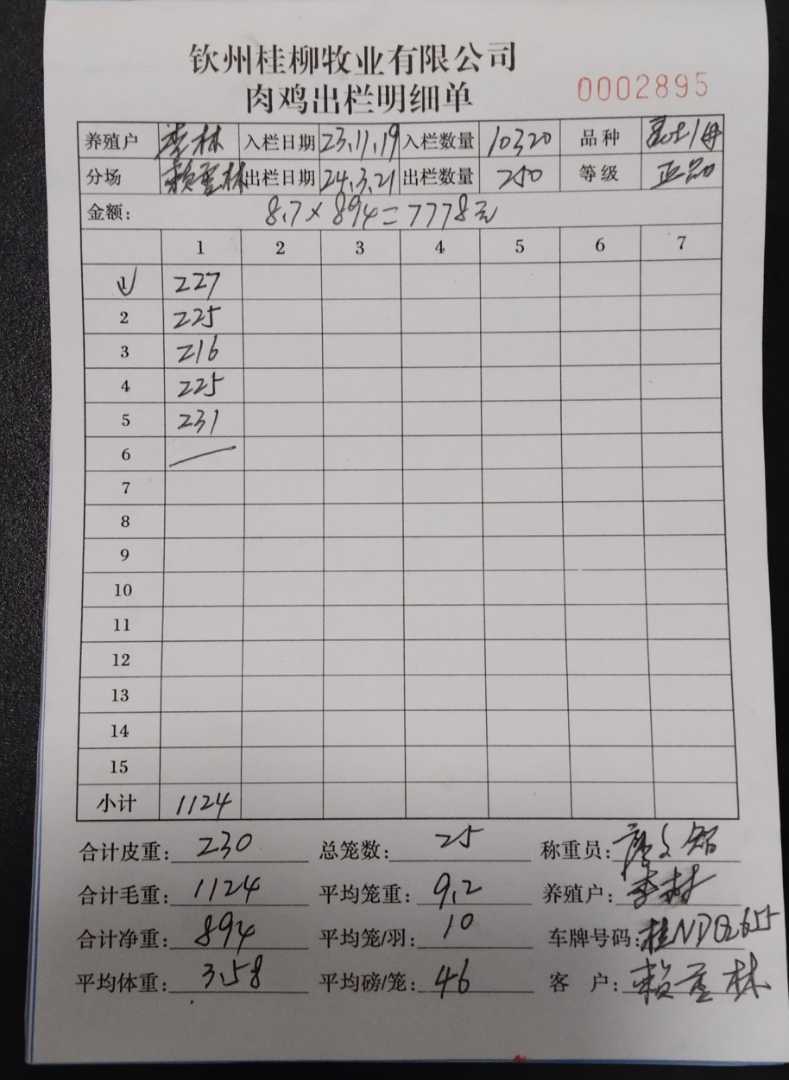 钦州桂柳牧业有限公司
肉鸡出栏明细单 0002895
养殖户 李林 入栏日期 23.11.19 入栏数量 10320 品种
分场 赖 林 出栏日期 24.3.21 出栏数量 250 等级 正品
金额: 8.7×894=7778元
1 2 3 4 5 6 7
1 227
2 225
3 216
4 225
5 231
6
7
8
9
10
11
12
13
14
15
小计 1124
合计皮重: 230 总笼数: 25 称重员: 廖文铭
合计毛重: 1124 平均笼重: 9.2 养殖户: 李林
合计净重: 894 平均笼/羽: 10 车牌号码: 桂ND
平均体重: 3.58 平均磅/笼: 46 客 户: 赖 林